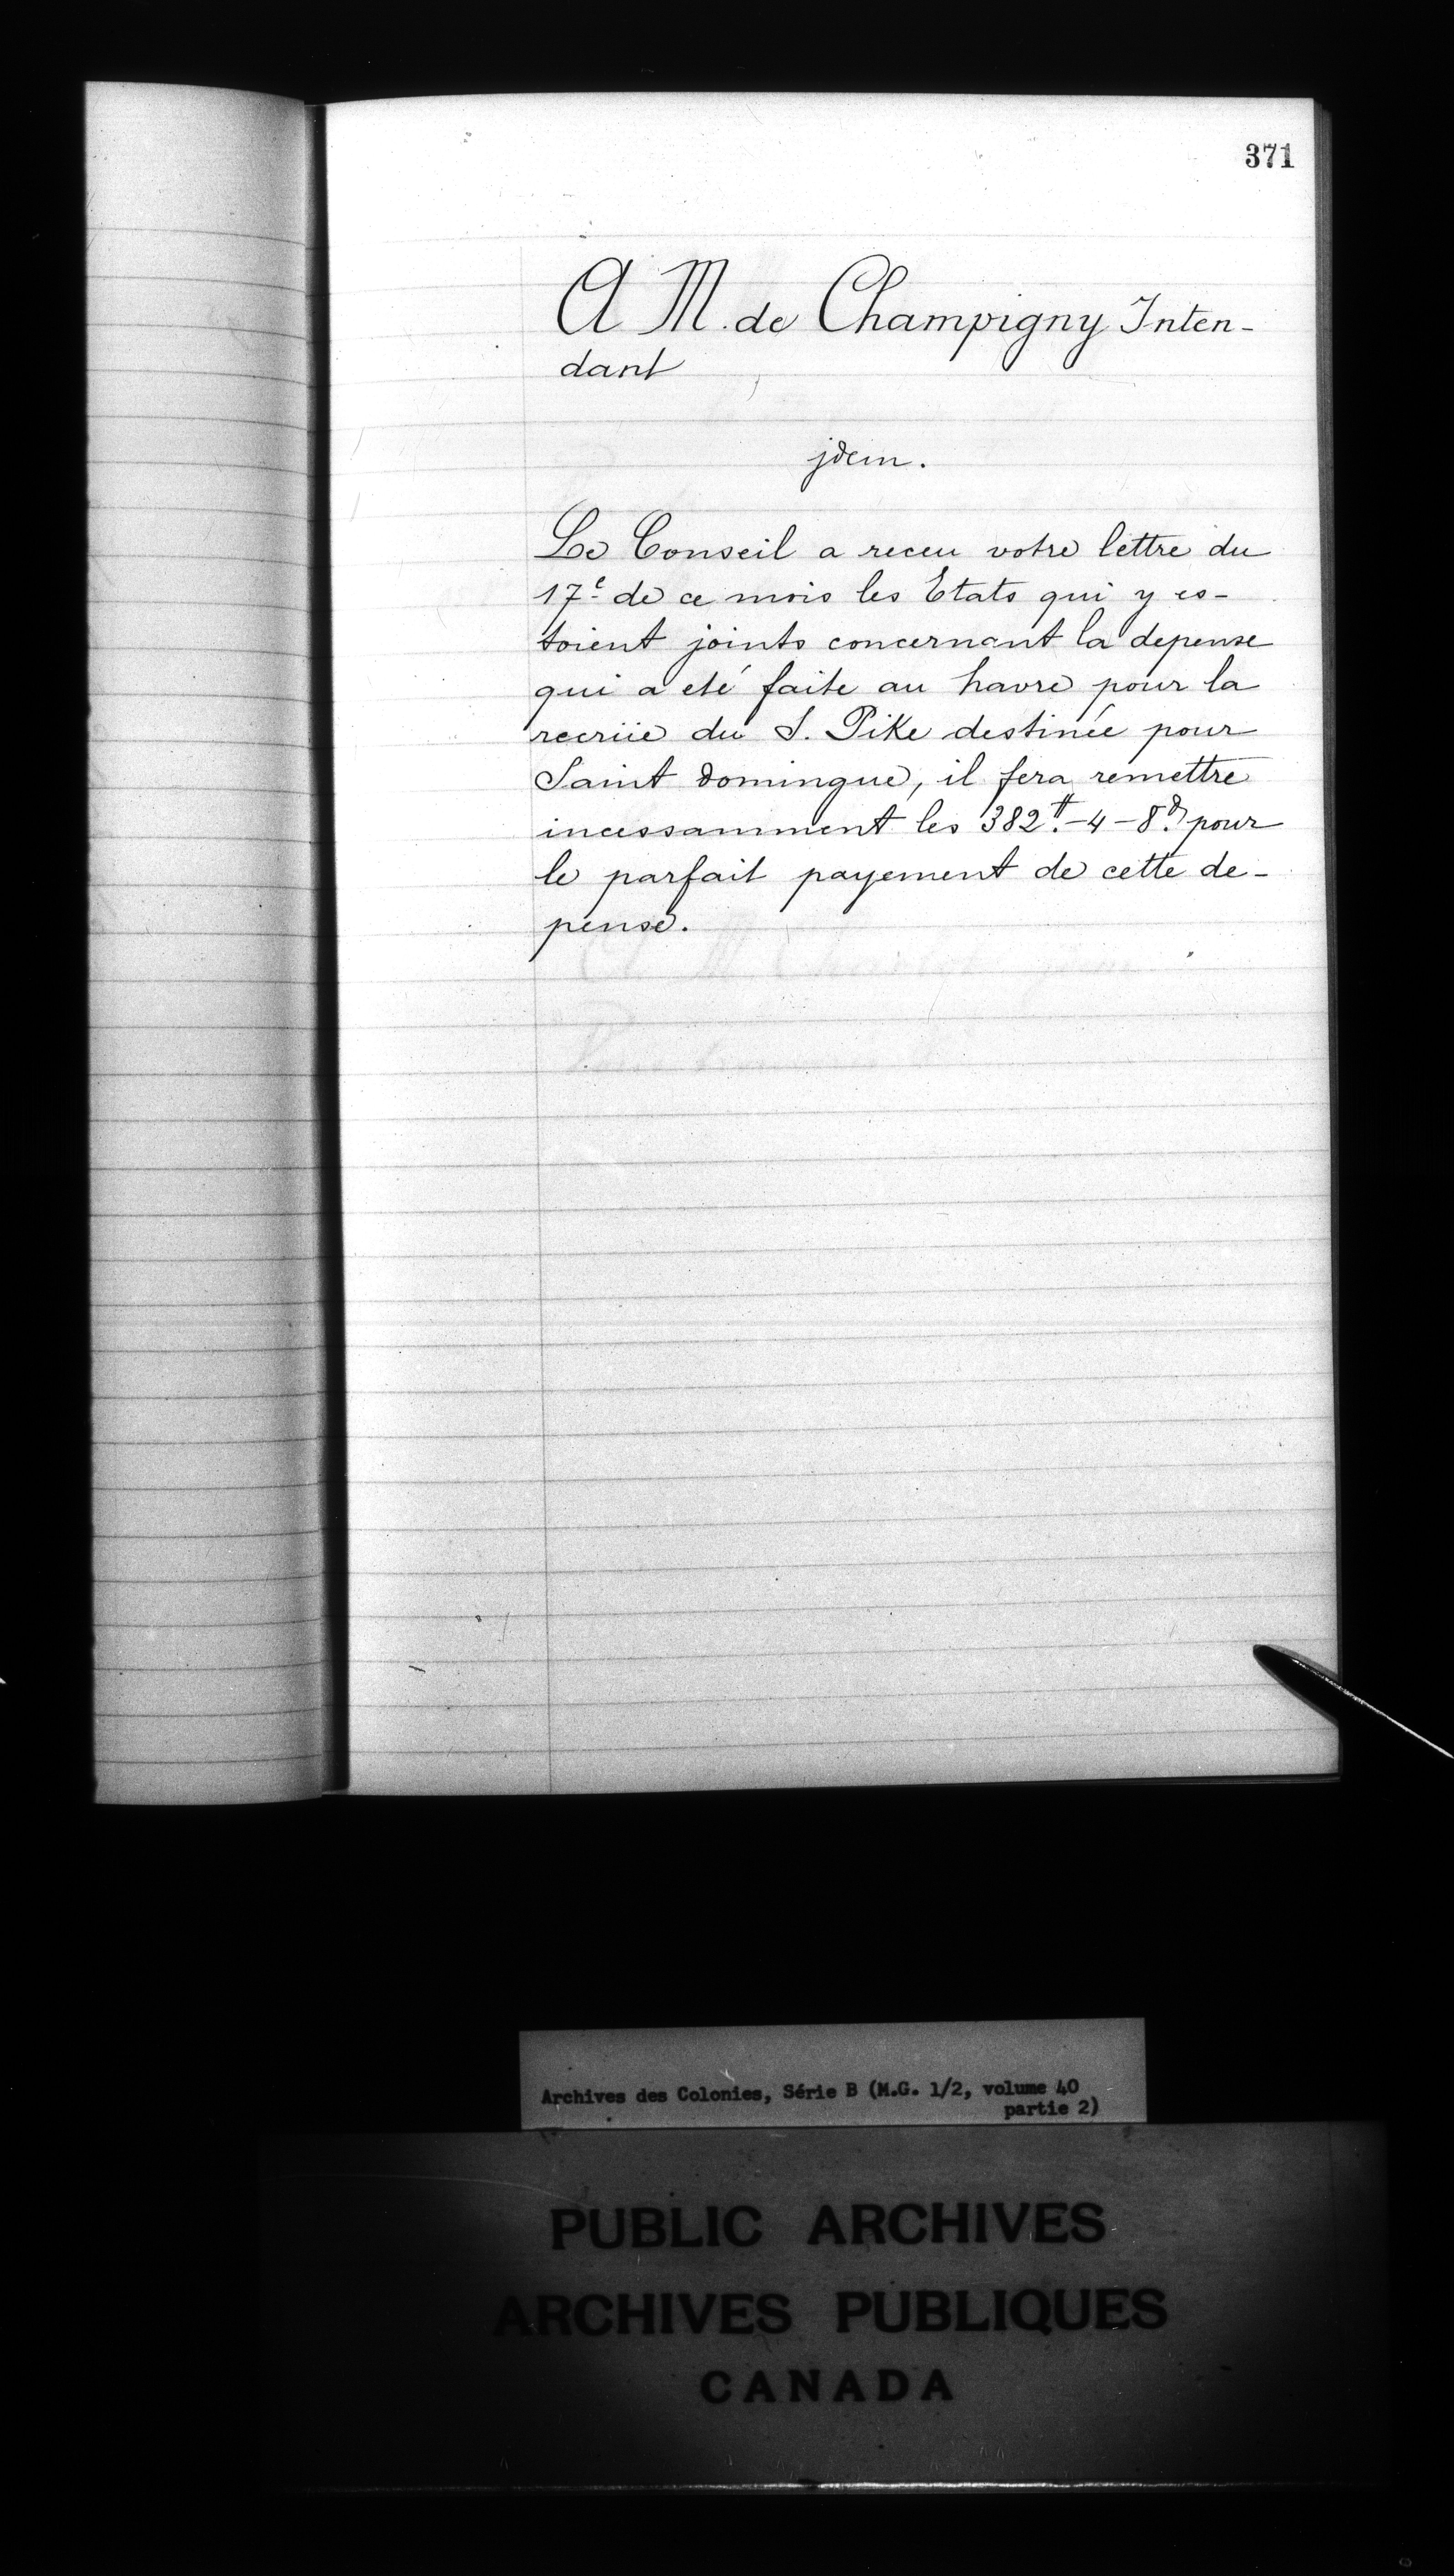 371
A M. de Champigny Inten-
dant
jdem.
Le Conseil a receu votre lettre du
17e de ce mois les Etats qui y es-
toient joints concernant la depense
qui a eté faite au havre pour la
recrüe du S. Pike destinée pour
Saint domingue, il fera remettre
incessamment les 382tt.-4-8d. pour
le parfait payement de cette de-
pense.
Archives des Colonies, Série B (M.G. 1/2, volume 40
partie 2)
PUBLIC ARCHIVES
ARCHIVES PUBLIQUES
CANADA